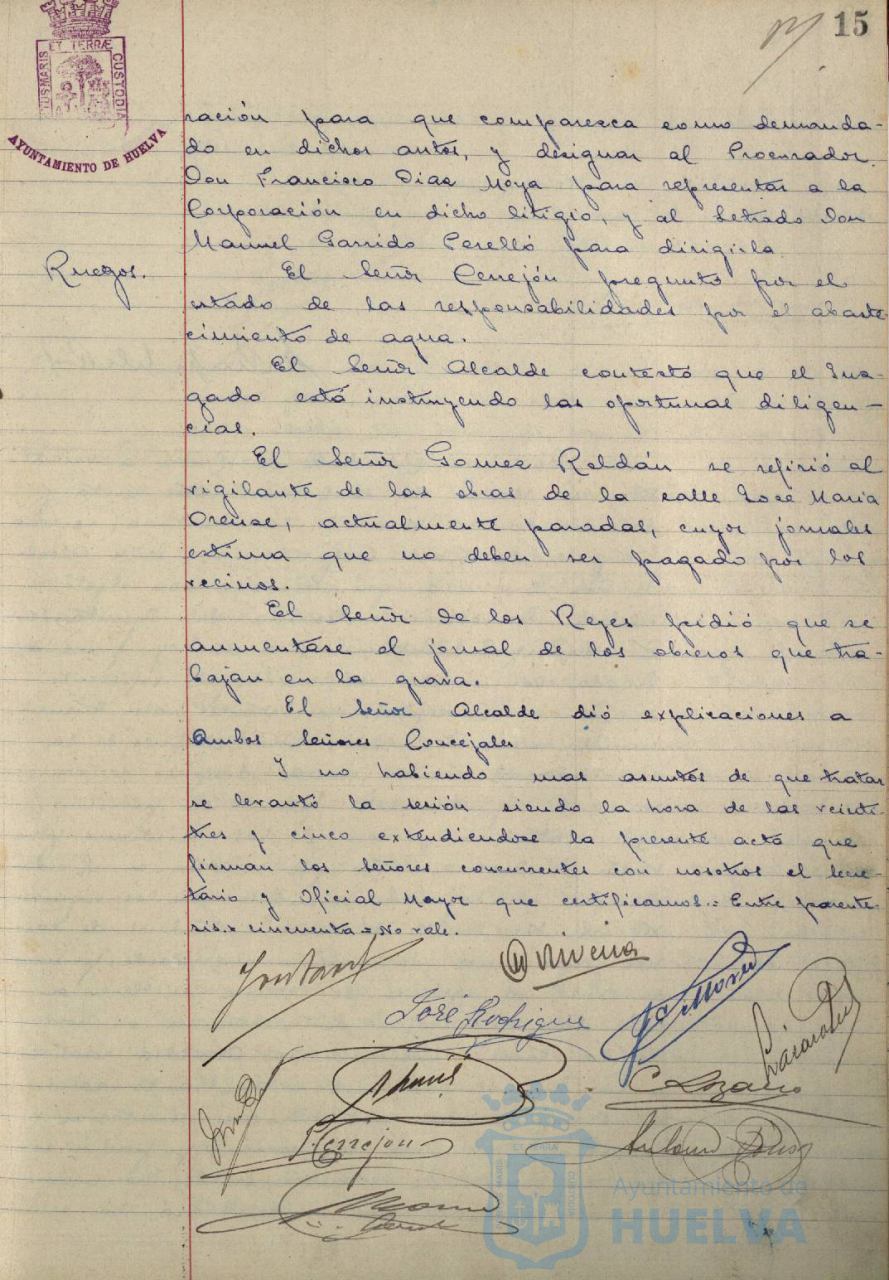 15
PORTUS MARIS ET TERRÆ CUSTODIA
AYUNTAMIENTO DE HUELVA
ración para que comparezca como demanda-
do en dichos autos, y designar al Procurador
Don Francisco Diaz Moya para representar a la
Corporación en dicho litigio, y al Letrado Don
Manuel Garrido Perelló para dirigirla
Ruegos.
El Señor Cerrejón pregunto por el
estado de las responsabilidades por el abaste-
cimiento de agua.
El Señor Alcalde contestó que el Juz-
gado está instruyendo las oportunas diligen-
cias.
El Señor Gomez Roldán se refirió al
vigilante de las obras de la calle José Maria
Orense, actualmente paradas, cuyos jornales
estima que no deben ser pagado por los
vecinos.
El Señor de los Reyes pidió que se
aumentase el jornal de los obreros que tra-
bajan en la grava.
El Señor Alcalde dió explicaciones a
Ambos Señores Concejales
Y no habiendo mas asuntos de que tratar
se levantó la sesión siendo la hora de las veinti-
tres y cinco extendiendose la presente acta que
firman los señores concurrentes con nosotros el Secre-
tario y Oficial Mayor que certificamos.= Entre parente-
sis.= cincuenta = No vale.
José Rodriguez
C Lozano
Cerrejón
Ayuntamiento de
HUELVA